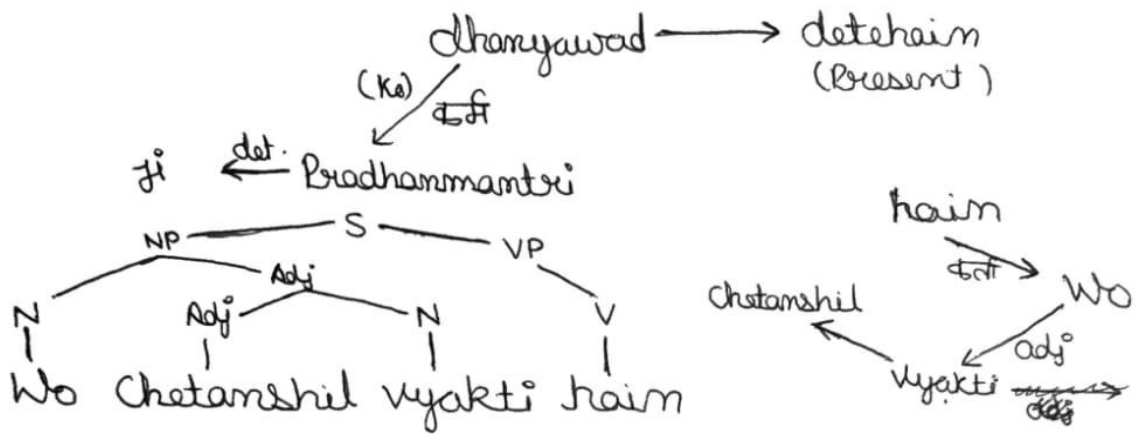 dhanyawad detehain
(Present)
(Ko) कर्म
Ji det. Pradhanmantri
S
NP VP
Adj
N Adj N V
Wo Chetanshil vyakti hain
hain
कर्ता
Chetanshil Wo
adj
Vyakti